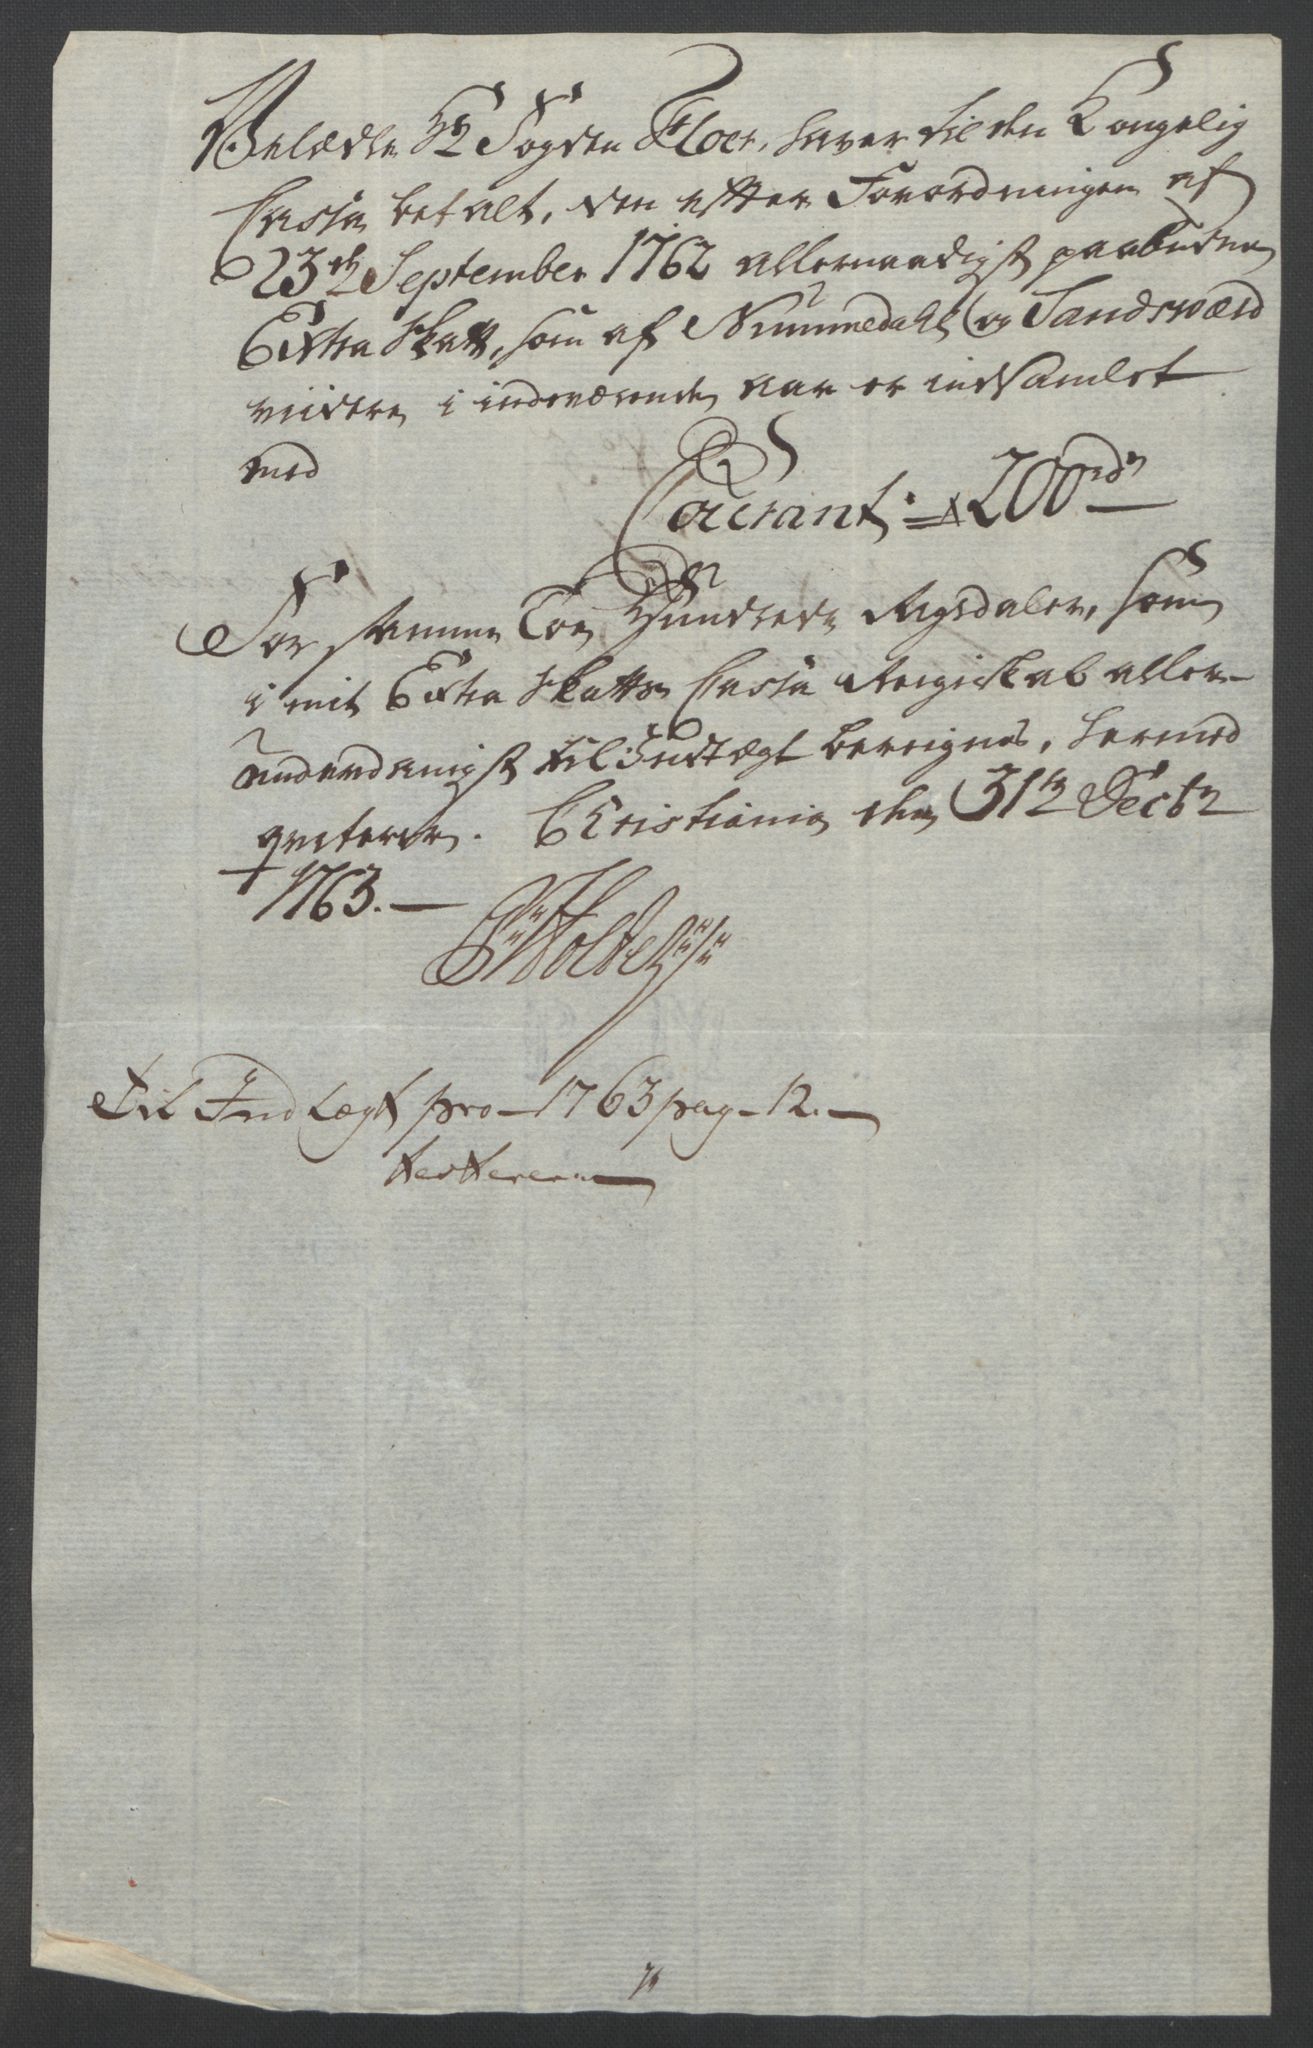 Velædle Hr Fogden Floer, haver til den Kongelig
Cassa betalt, den efter Forordningen af
23de September 1762 allernaadigst paabudne
Extra Skatt, som af Nummedahls og Sandsværd
viidere i indeværende aar er indsamlet
med
Courant = 200rdr
For samme Toe Hundrede Rigsdaler, som
i mit Extra Skatts Cassa Reigiskab aller-
underdanigst til Indtægt bereignes, hermed
qviterer. Christiania den 31te Decbr
1763.
Holde
Til Indtægt pro 1763 pag 12.
testerer